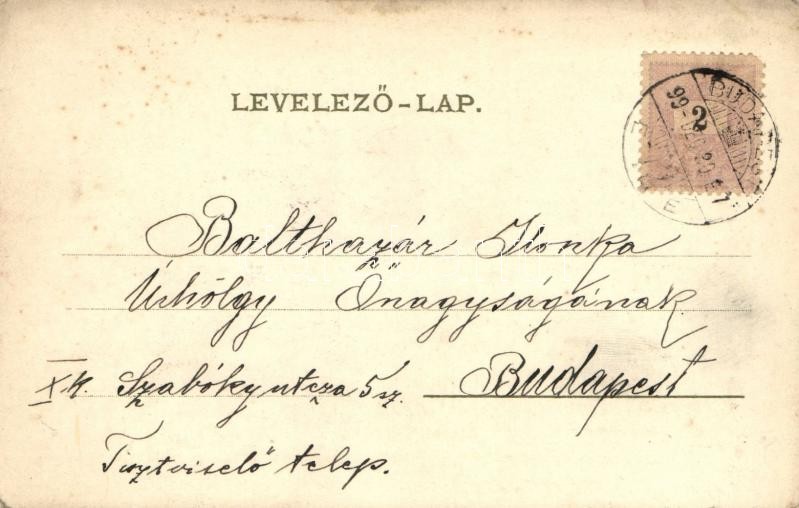 LEVELEZŐ-LAP.
2
BUDAPEST
99 DEC 20
Balthazár Ilonka
Úrhölgy Őnagyságának
X k. Szabóky utcza 5 sz. Budapest
Tisztviselő telep.